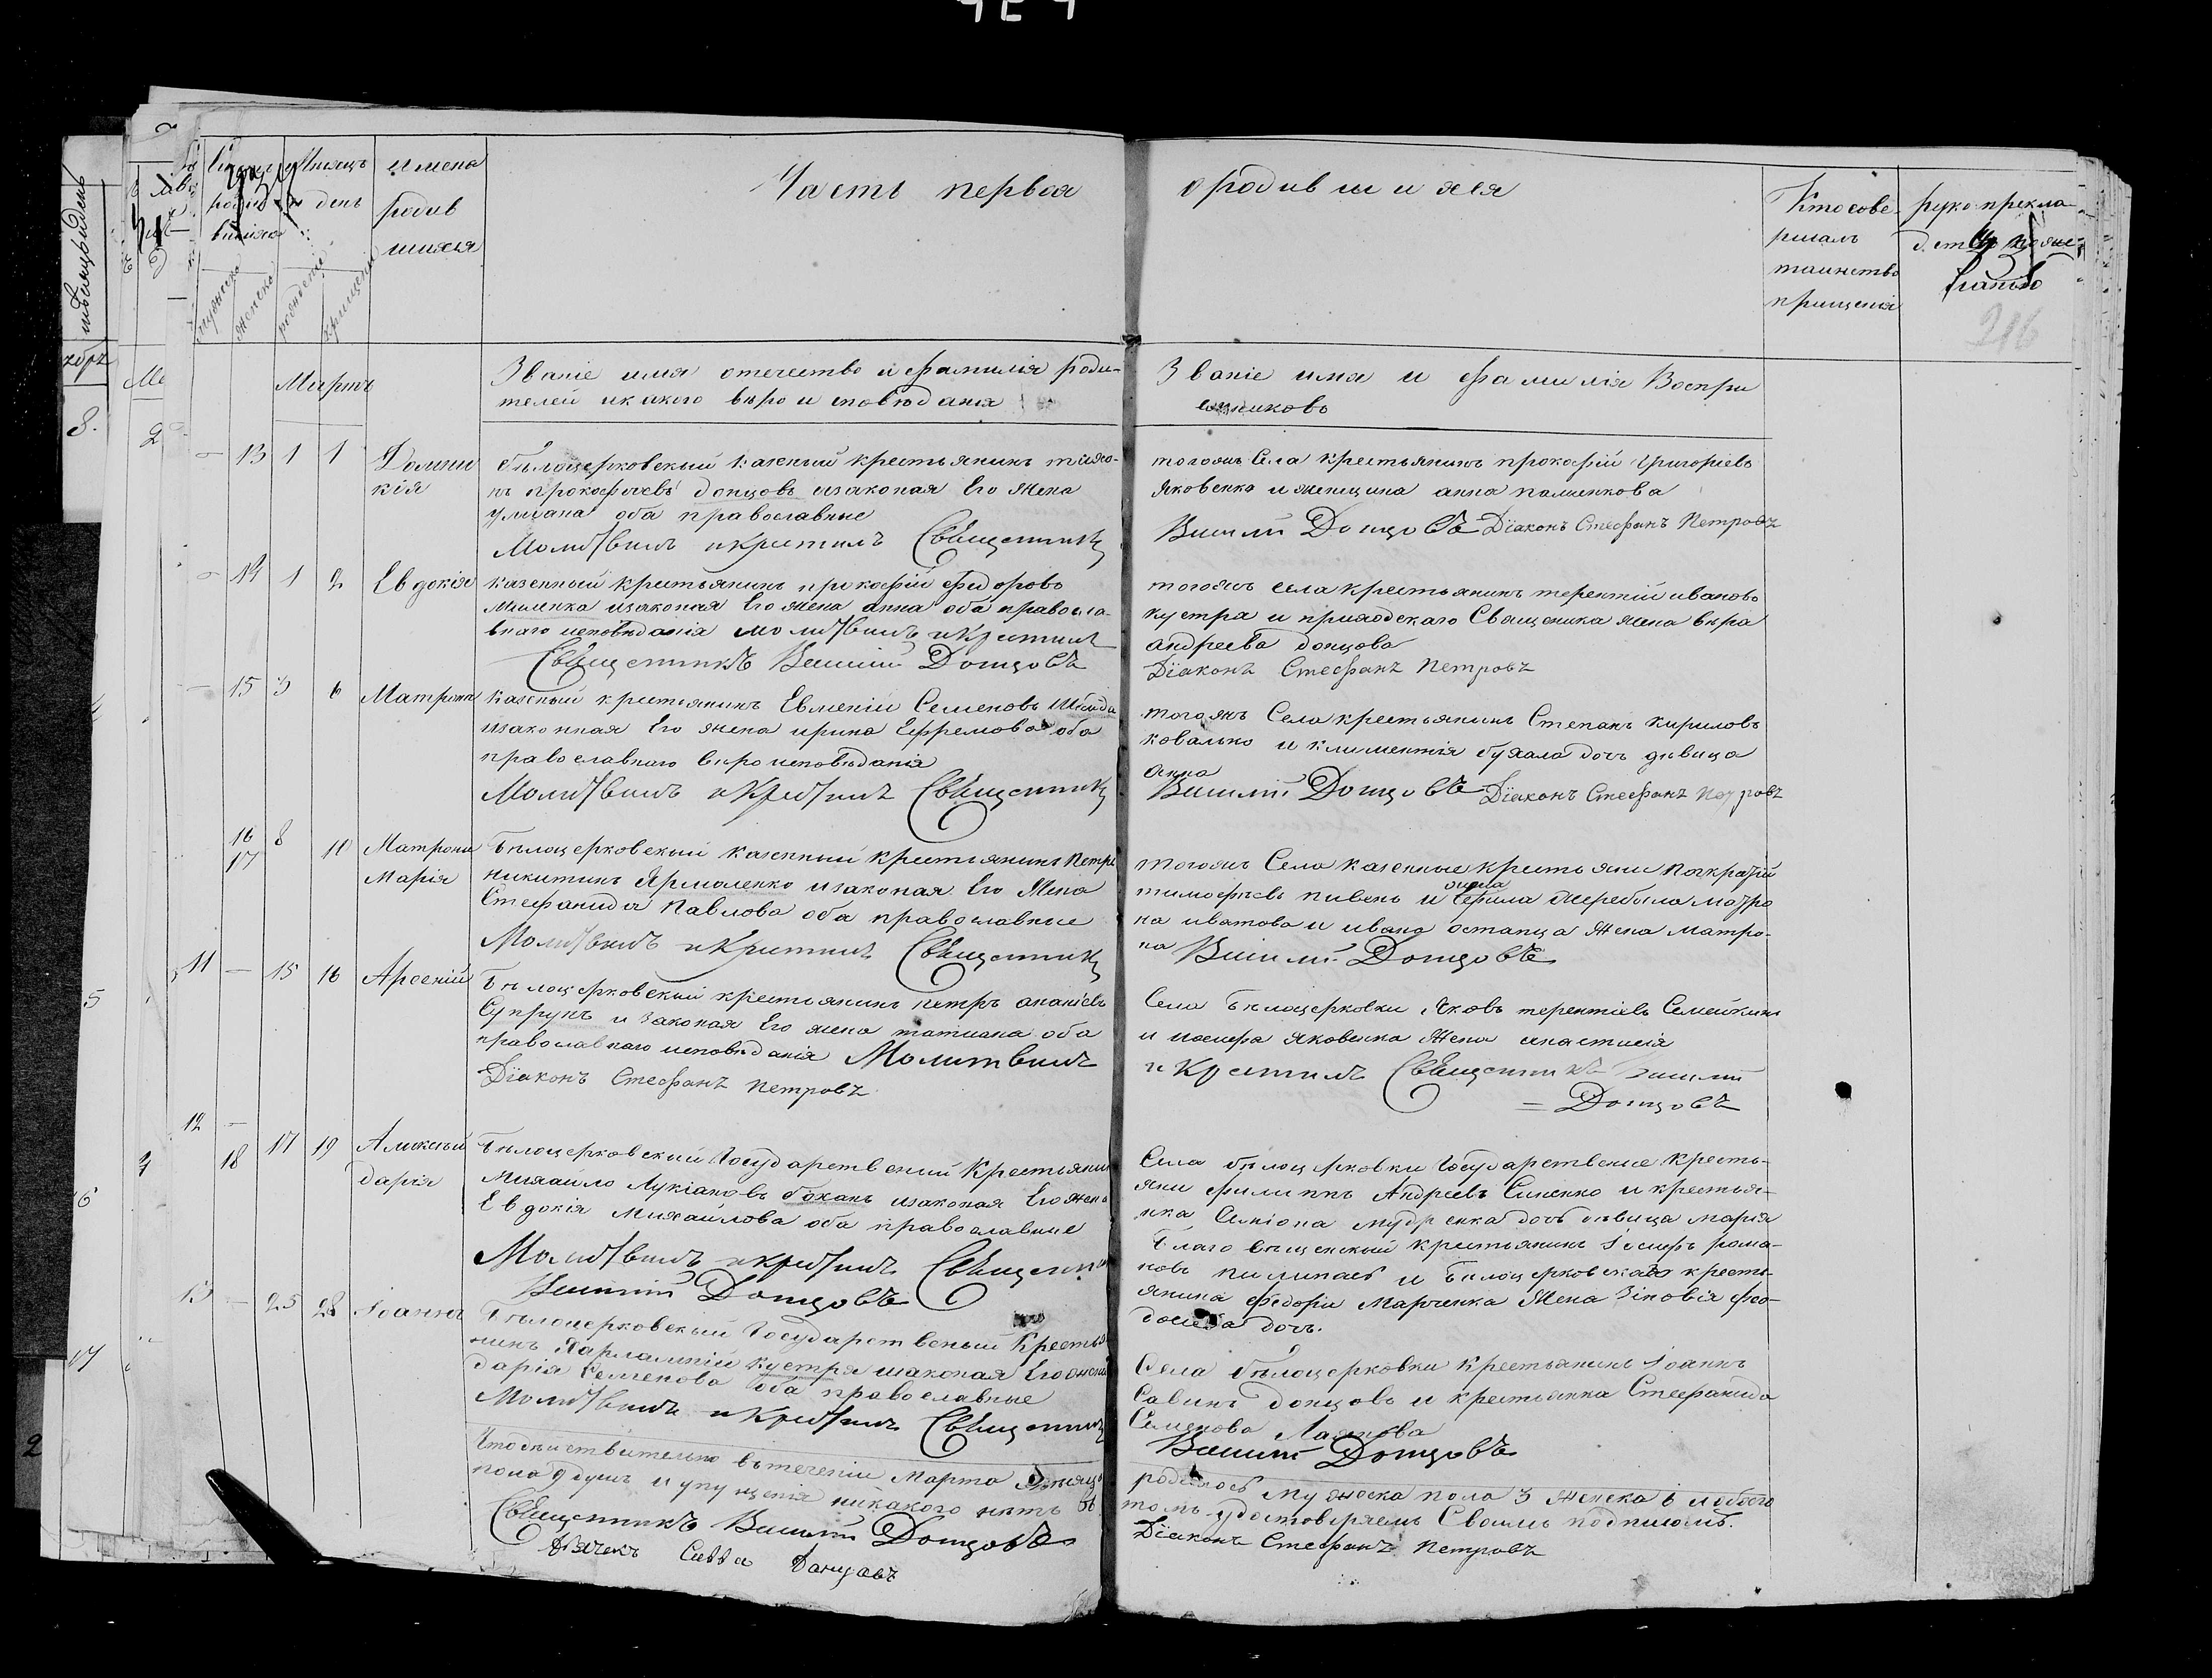 Часть первая о родившихся
имена
родив
шихся
мужеска
женска
рожденія
крещенія
Кто сове-
ршалъ
таинство
крищенія
руко прикла
216
Мартъ
Званіе имя отечество и фамилія роди-
телей и какого вѣро исповѣданія
Званіе имя и фамилія Воспри
емниковъ
13 1 1 Домни
кія
бѣлоцерковскый казеный крестьянинъ
прокофьевъ донцовъ изаконая Его Жена
улиана оба православные
Молитвилъ и Крестилъ Священникъ
тогожъ Села крестьянинъ прокофій григоріевъ
Яковенко и женщина анна
Василій Донцовъ Діаконъ Стефанъ Петровъ
14 1 2 Евдокія
казенный крестьянинъ прокофій Федоровъ
Миленка изаконая Его жена анна оба правосла-
внаго исповѣданія молитвилъ и Крестилъ
Священникъ Василій Донцовъ
тогожъ села крестьянинъ терентій ивановъ
кустра и приходскаго Священика жена вѣра
андреева донцова
Діаконъ Стефанъ Петровъ
15 3 6 Матрона
казеный крестьянинъ Евменій Семеновъ
изаконная Его жена ирина Ефремова оба
православнаго вѣро исповѣданія
Молитвилъ и Крестилъ Священникъ
тогожъ Села крестьянинъ Степанъ кириловъ
ковалько и климентія бухала дочь дѣвица
анна
Василій Донцовъ Діаконъ Стефанъ Петровъ
16 8 10 Матрона
17 Марія
Бѣлоцерковскый казенный крестьянинъ Петръ
никитинъ Ярмоленко изаконая Его Жена
Стефанида Павлова оба православные
Молитвилъ и Крестилъ Священникъ
тогожъ Села казенные крестьяни Панкратій
тимофѣевъ пивень и
на иватова и ивана остапца Жена матро-
на Василій Донцовъ
11 — 15 16 Арсеній
Бѣлоцерковскый крестьянинъ петръ ананіевъ
Супрунъ и законая Его жена татиана оба
православнаго исповѣданія Молитвилъ
Діаконъ Стефанъ Петровъ
Села Бѣлоцерковки Яковъ терентіевъ Семейкинъ
и иосифа яковенка Жена анастасія
и Крестилъ Священникъ Василій
Донцовъ
12 — 17 19 Алексѣй
18 дарія
Бѣлоцерковскый Государственый Крестьянинъ
Михайло Лукіановъ бохань изаконая Его жена
Евдокія Михайлова оба православные
Молитвилъ и крестилъ Священникъ
Василій Донцовъ
Села бѣлоцерковки Государственые кресть-
яни филиппъ Андреевъ Синенко и крестья-
нка Симіона мудренка дочь дѣвица марія
Благовѣщенскый крестьянинъ Іосифъ рома-
новъ и Бѣлоцерковскаго кресть-
янина Федора Марченка Жена Зиновія фео-
досіева дочь.
13 — 25 28 Іоаннъ
Бѣлоцерковскый Государственый Крестья
нинъ Харлампій кустря изаконая Его жена
дарія Семенова оба православные
Молитвилъ и Крестилъ Священникъ
Села бѣлоцерковки Крестьянинъ Іоаннъ
Савинъ донцовъ и крестьянка Стефанида
Семенова
Василій Донцовъ
Что дѣйствительно втеченіи Марта мѣсяца родилось мужеска пола 3 женска 6 обоего
пола 9 душъ и упущенія никакого нѣтъ въ томъ удостовѣряемъ Своимъ подписомъ.
Священникъ Василій Донцовъ
Діаконъ Стефанъ Петровъ
Дячекъ Савва Донцовъ